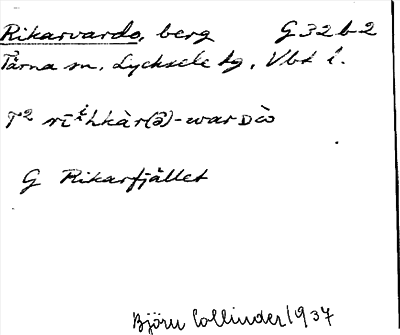 Rikarvardo, berg G 32 b 2
Tärna sn, Lycksele lg, Vbt l.
T² rīⁱhkàr(ə)-warDὼ
G Rikarfjället
Björn Collinder 1937